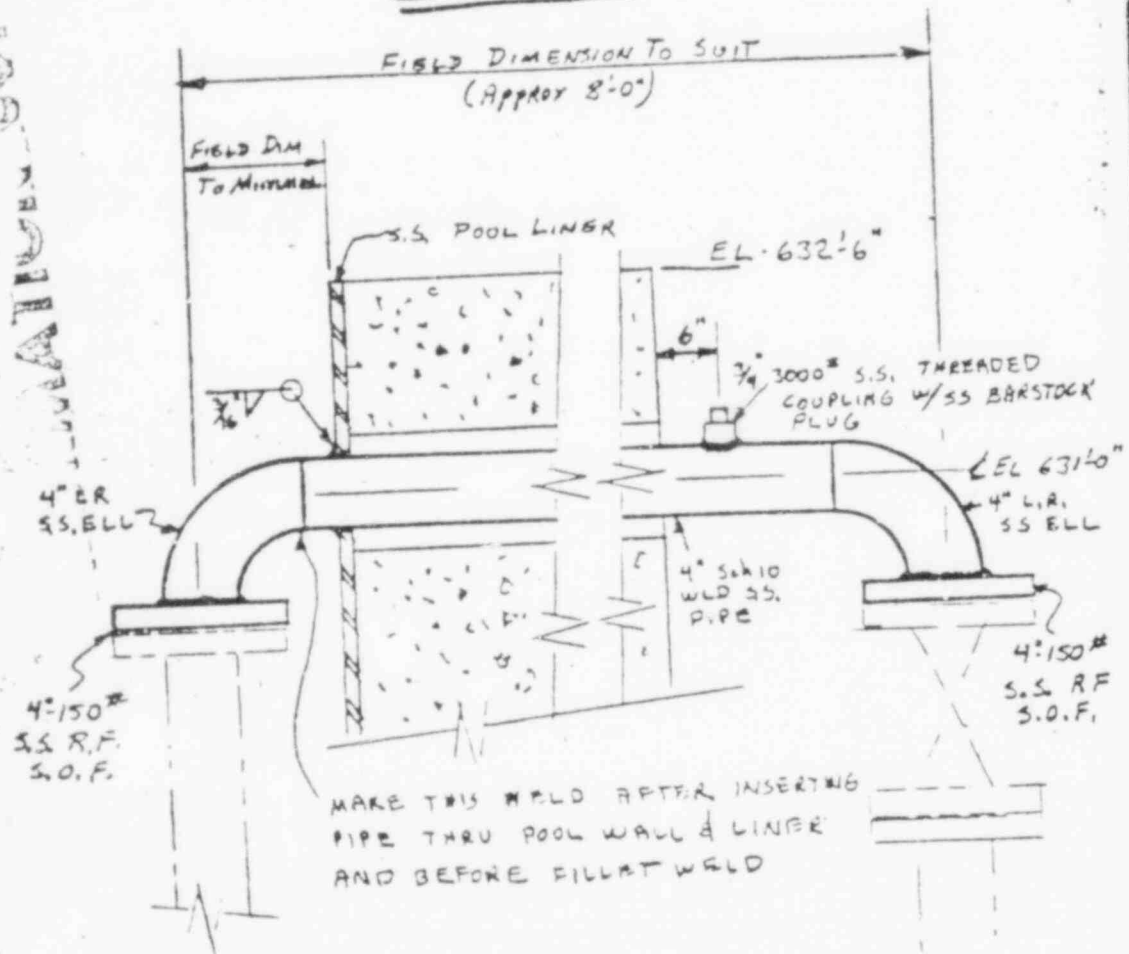 FIELD DIMENSION TO SUIT
(Approx 8'-0")
FIELD DIM
To
S.S. POOL LINER
EL. 632'-6"
6"
3/4" 3000# S.S. THREADED
COUPLING W/SS BARSTOCK
PLUG
3/16
℄ EL 631'-0"
4" LR
S.S. ELL
4" L.R.
SS ELL
4" Sch 10
WLD SS.
PIPE
4"-150#
S.S. R.F.
S.O.F.
4"-150#
S.S. RF
S.O.F.
MAKE THIS WELD AFTER INSERTING
PIPE THRU POOL WALL & LINER
AND BEFORE FILLET WELD